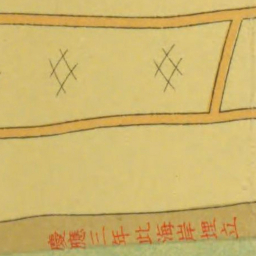 慶應三年此海岸埋立